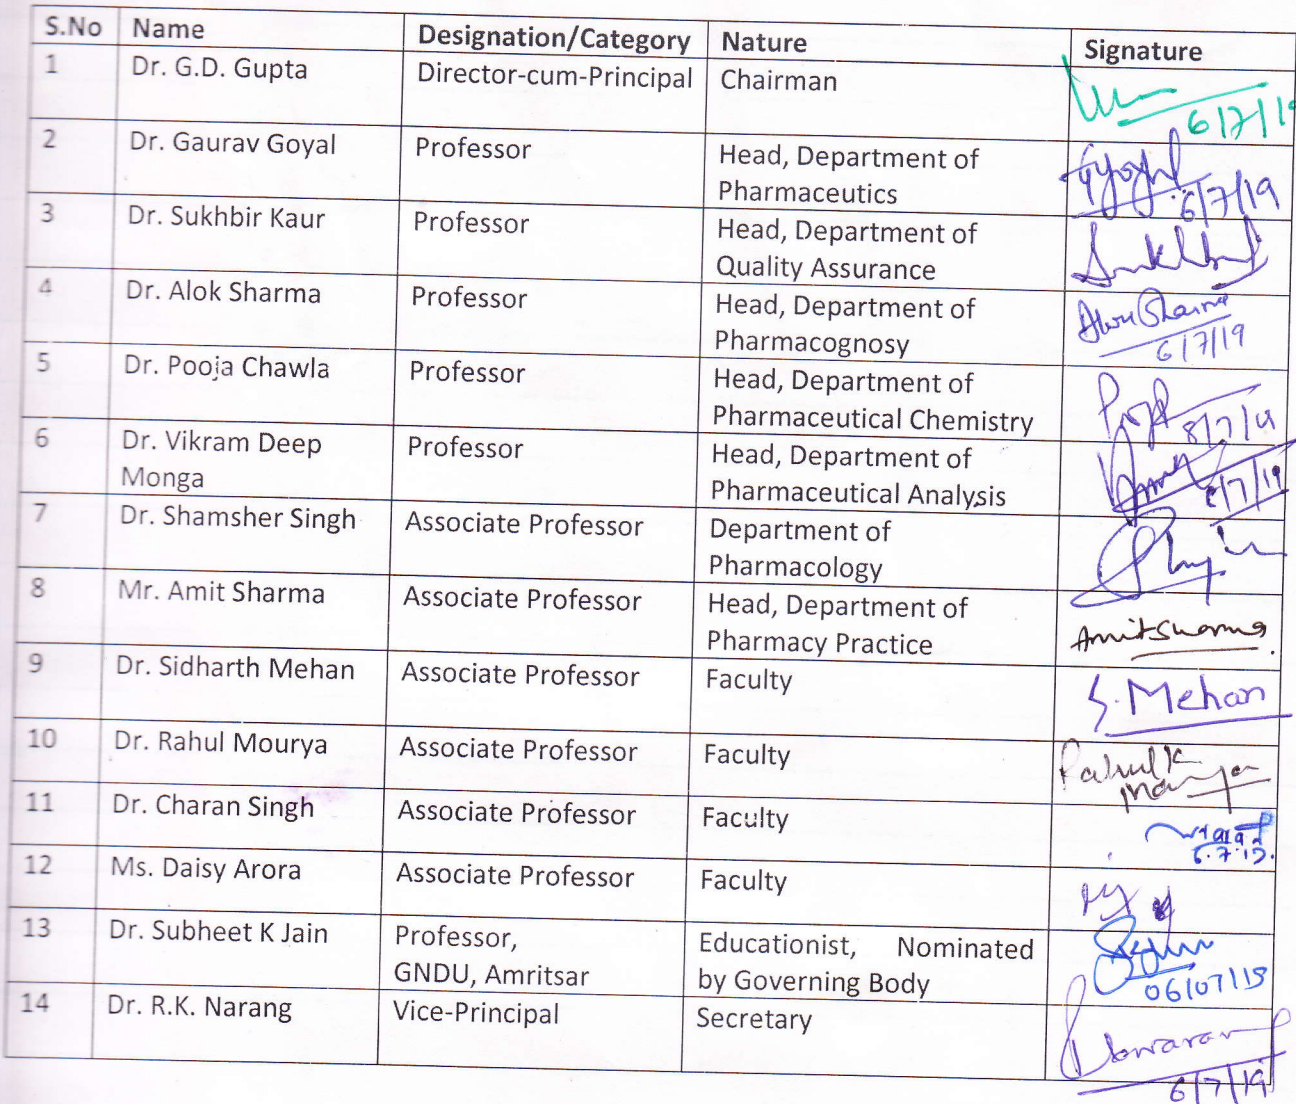 S.No Name Designation/Category Nature Signature
1 Dr. G.D. Gupta Director-cum-Principal Chairman
6/7/19
2 Dr. Gaurav Goyal Professor Head, Department of
Pharmaceutics
6/7/19
3 Dr. Sukhbir Kaur Professor Head, Department of
Quality Assurance
4 Dr. Alok Sharma Professor Head, Department of
Pharmacognosy
6/7/19
5 Dr. Pooja Chawla Professor Head, Department of
Pharmaceutical Chemistry
6 Dr. Vikram Deep Professor Head, Department of
Monga Pharmaceutical Analysis
7 Dr. Shamsher Singh Associate Professor Department of
Pharmacology
8 Mr. Amit Sharma Associate Professor Head, Department of
Pharmacy Practice Amit Sharma
9 Dr. Sidharth Mehan Associate Professor Faculty S. Mehan
10 Dr. Rahul Mourya Associate Professor Faculty
11 Dr. Charan Singh Associate Professor Faculty
12 Ms. Daisy Arora Associate Professor Faculty
13 Dr. Subheet K Jain Professor, Educationist, Nominated
GNDU, Amritsar by Governing Body
14 Dr. R.K. Narang Vice-Principal Secretary
6/7/19